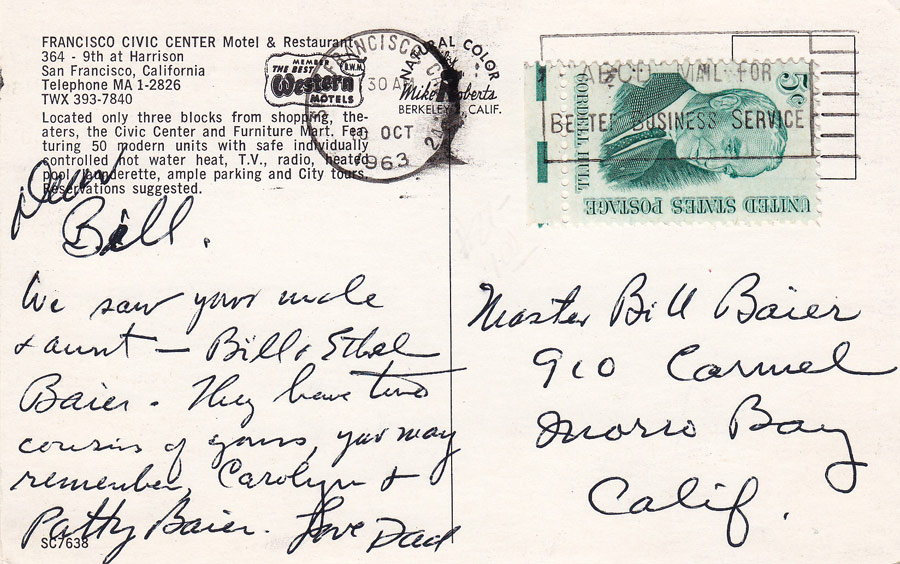 FRANCISCO CIVIC CENTER Motel & Restaurant
364 - 9th at Harrison
San Francisco, California
Telephone MA 1-2826
TWX 393-7840
MEMBER
THE BEST B.W.M.
Western
MOTELS
Located only three blocks from shopping, the-
aters, the Civic Center and Furniture Mart. Fea-
turing 50 modern units with safe individually
controlled hot water heat, T.V., radio, heated
pool, ample parking and City tours.
Reservations suggested.
NATURAL COLOR
Mike Roberts
BERKELEY, CALIF.
FRANCISCO, CA
30 OCT
1963
ABCD MAIL FOR
BETTER BUSINESS SERVICE
5c
CORDELL HULL
UNITED STATES POSTAGE
Dear
Bill.
We saw your uncle
& aunt — Bill & Ethel
Baier. They have two
cousins of yours, you may
remember, Carolyn &
Patty Baier. Love Dad
SC7638
Master Bill Baier
910 Carmel
Morro Bay
Calif.